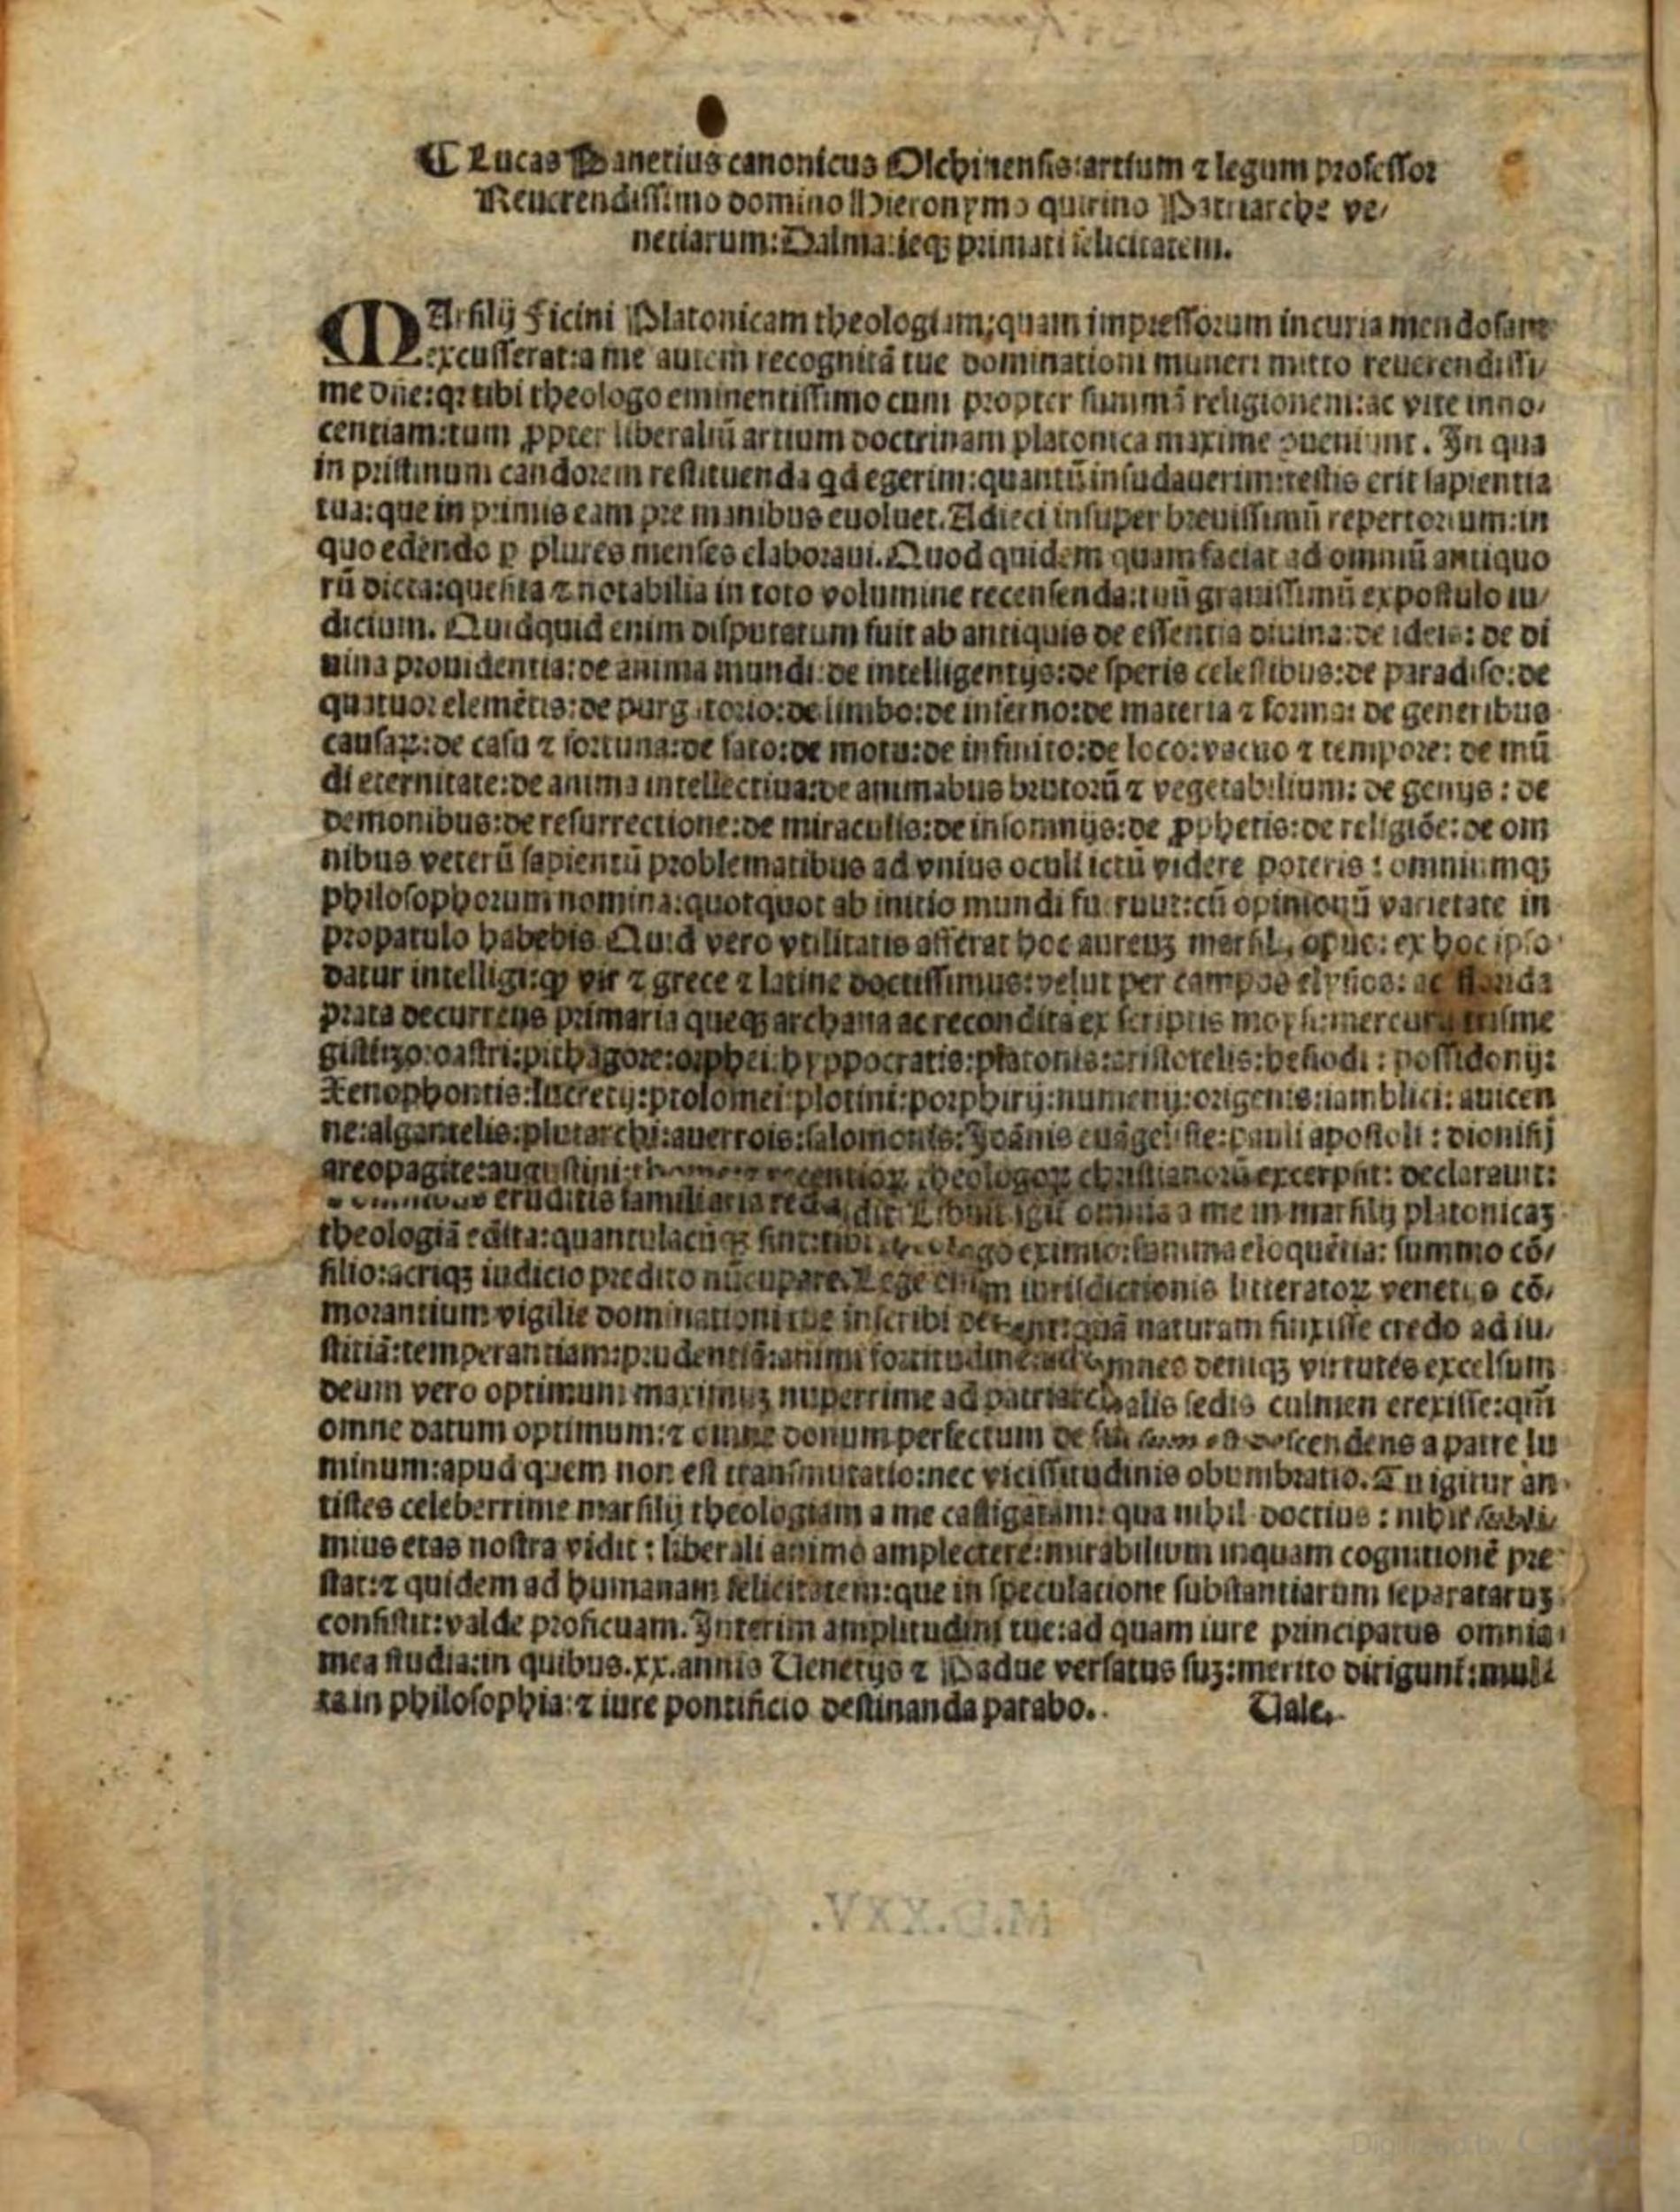 ¶ Lucas Panetius canonicus Olchinensis: artium ⁊ legum professor
Reuerendissimo domino Hieronymo quirino Patriarche ve/
netiarum: Dalmatieqꝫ primati felicitatem.
MArsilij Ficini Platonicam theologiam; quam impressorum incuria mendosam
excusserat: a me autem recognitā tue dominationi muneri mitto reuerendissi/
me dn̄e: qꝛ tibi theologo eminentissimo cum propter summā religionem: ac vite inno/
centiam: tum ꝓpter liberaliū artium doctrinam platonica maxime ꝯueniunt. In qua
in pristinum candorem restituenda qd egerim: quantū insudauerim: testis erit sapientia
tua: que in primis eam pre manibus euoluet. Adieci insuper breuissimū repertorium: in
quo edendo ꝑ plures menses elaboraui. Quod quidem quam faciat ad omniū antiquo
rū dicta: quesita ⁊ notabilia in toto volumine recensenda: tuū grauissimū expostulo iu/
dicium. Quidquid enim disputatum fuit ab antiquis de essentia diuina: de ideis: de di
uina prouidentia: de anima mundi: de intelligentijs: de speris celestibus: de paradiso: de
quatuor elemētis: de purgatorio: de limbo: de inferno: de materia ⁊ forma: de generibus
causaꝝ: de casu ⁊ fortuna: de fato: de motu: de infinito: de loco: vacuo ⁊ tempore: de mū
di eternitate: de anima intellectiua: de animabus brutorū ⁊ vegetabilium: de genijs: de
demonibus: de resurrectione: de miraculis: de insomnijs: de ꝓphetis: de religiōe: de om
nibus veterū sapientū problematibus ad vnius oculi ictū videre poteris: omniumqꝫ
philosophorum nomina: quotquot ab initio mundi fuerunt: cū opinionū varietate in
propatulo habebis. Quid vero vtilitatis afferat hoc aureuꝫ marsil. opus: ex hoc ipso
datur intelligi: ꝙ vir ⁊ grece ⁊ latine doctissimus: velut per campos elysios: ac florida
prata decurrens primaria queqꝫ archana ac recondita ex scriptis moysi: mercurij trisme
gisti: zoroastri: pithagore: orphei: hyppocratis: platonis: aristotelis: hesiodi: possidonij:
Xenophontis: lucretij: ptolomei: plotini: porphirij: numenij: origenis: iamblici: auicen
ne: algazelis: plutarchi: auerrois: salomonis: Joānis euāgeliste: pauli apostoli: dionisij
areopagite: augustini: recentioꝝ theologoꝝ christianorū excerpsit: declarauit:
eruditis familiaria reddidit. Libuit igit omnia a me in marsilij platonicaꝫ
theologiā edita: quantulacūqꝫ sint: tibi theologo eximio: summa eloquētia: summo cō/
silio: acriqꝫ iudicio predito nūcupare. Lege enim iurisdictionis litteratoꝝ venetijs cō/
morantium vigilie dominationi tue inscribi debent: quā naturam finxisse credo ad iu/
stitiā: temperantiam: prudentiā: animi fortitudinē: ad omnes deniqꝫ virtutes excelsum
deum vero optimum maximuꝫ nuperrime ad patriarchalis sedis culmen erexisse: qm̄
omne datum optimum: ⁊ omne donum perfectum de sursum est descendens a patre lu
minum: apud quem non est transmutatio: nec vicissitudinis obumbratio. Tu igitur an
tistes celeberrime marsilij theologiam a me castigatam: qua nihil doctius: nihil subli/
mius etas nostra vidit: liberali animo amplectere: mirabilium inquam cognitionē pre
stat: ⁊ quidem ad humanam felicitatem: que in speculatione substantiarum separataruꝫ
consistit: valde proficuam. Interim amplitudini tue: ad quam iure principatus omnia
mea studia: in quibus .xx. annis Uenetijs ⁊ Padue versatus suꝫ: merito dirigunt: mul
ta in philosophia: ⁊ iure pontificio destinanda parabo. Uale.
M.D.XXV.
Digitized by Google